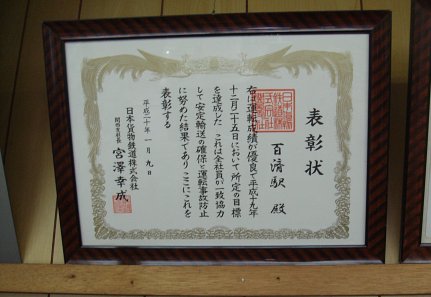 表彰状
百済駅 殿
右は運転成績が優良で平成十九年
十二月二十五日において所定の目標
を達成した これは全社員が一致協力
して安定輸送の確保と運転事故防止
に努めた結果であり ここにこれを
表彰する
平成二十年一月九日
日本貨物鉄道株式会社
関西支社長 宮澤幸成